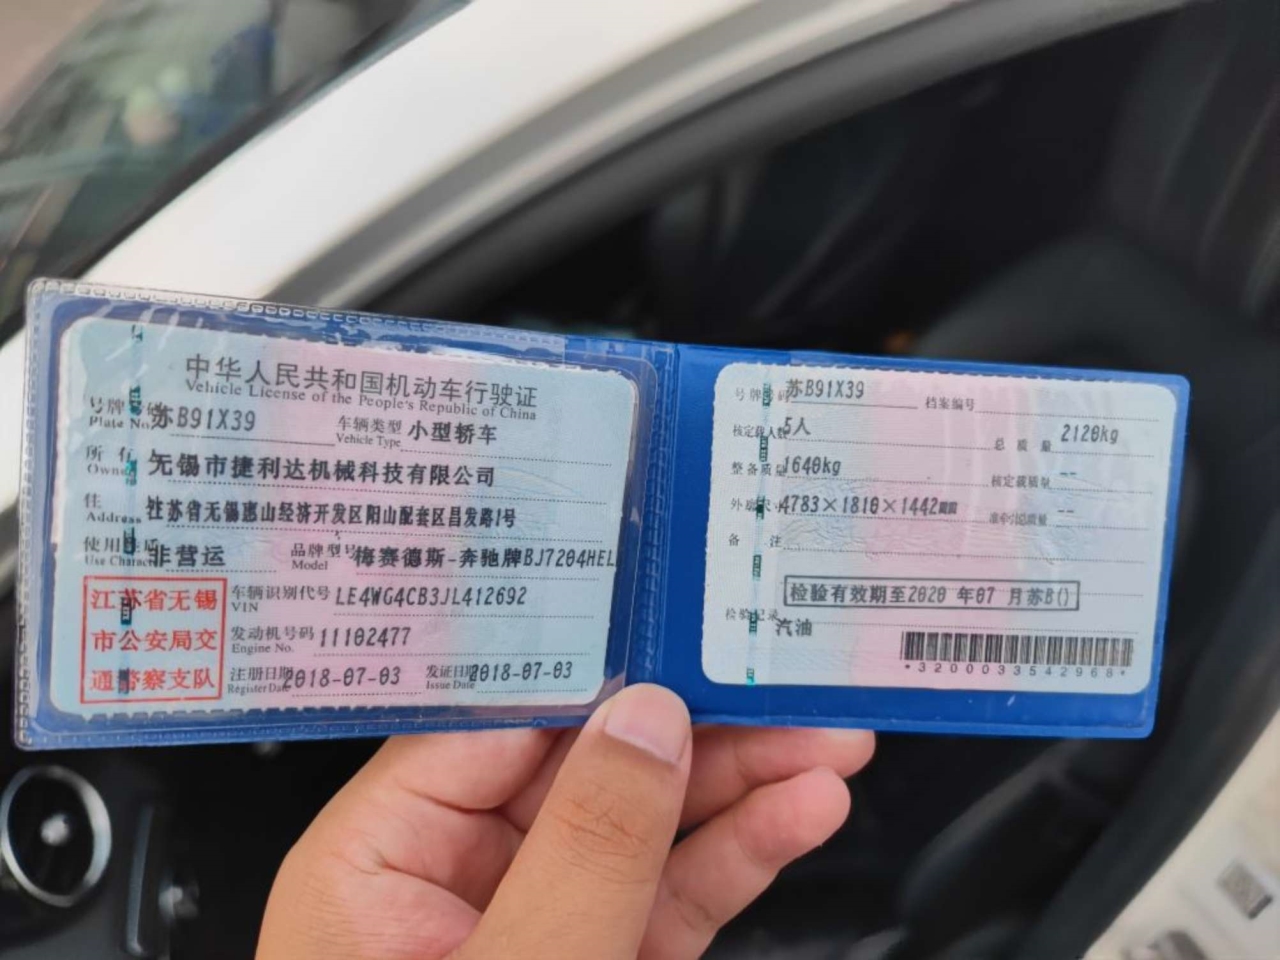 中华人民共和国机动车行驶证
Vehicle License of the People's Republic of China
号牌号码 苏B91X39 车辆类型 小型轿车
Plate No. Vehicle Type
所有人 无锡市捷利达机械科技有限公司
Owner
住 江苏省无锡惠山经济开发区阳山配套区昌发路1号
Address
使用性质 非营运 品牌型号 梅赛德斯-奔驰牌BJ7204HEL
Use Character Model
江苏省无锡
市公安局交
通警察支队
车辆识别代号 LE4WG4CB3JL412692
VIN
发动机号码 11102477
Engine No.
注册日期 2018-07-03 发证日期 2018-07-03
Register Date Issue Date
号牌号码 苏B91X39 档案编号
核定载人数 5人 总质量 2120kg
整备质量 1640kg 核定载质量 --
外廓尺寸 4783×1810×1442 准牵引总质量 --
备注
检验有效期至2020 年07 月苏B()
检验记录
汽油
*3200033542968*